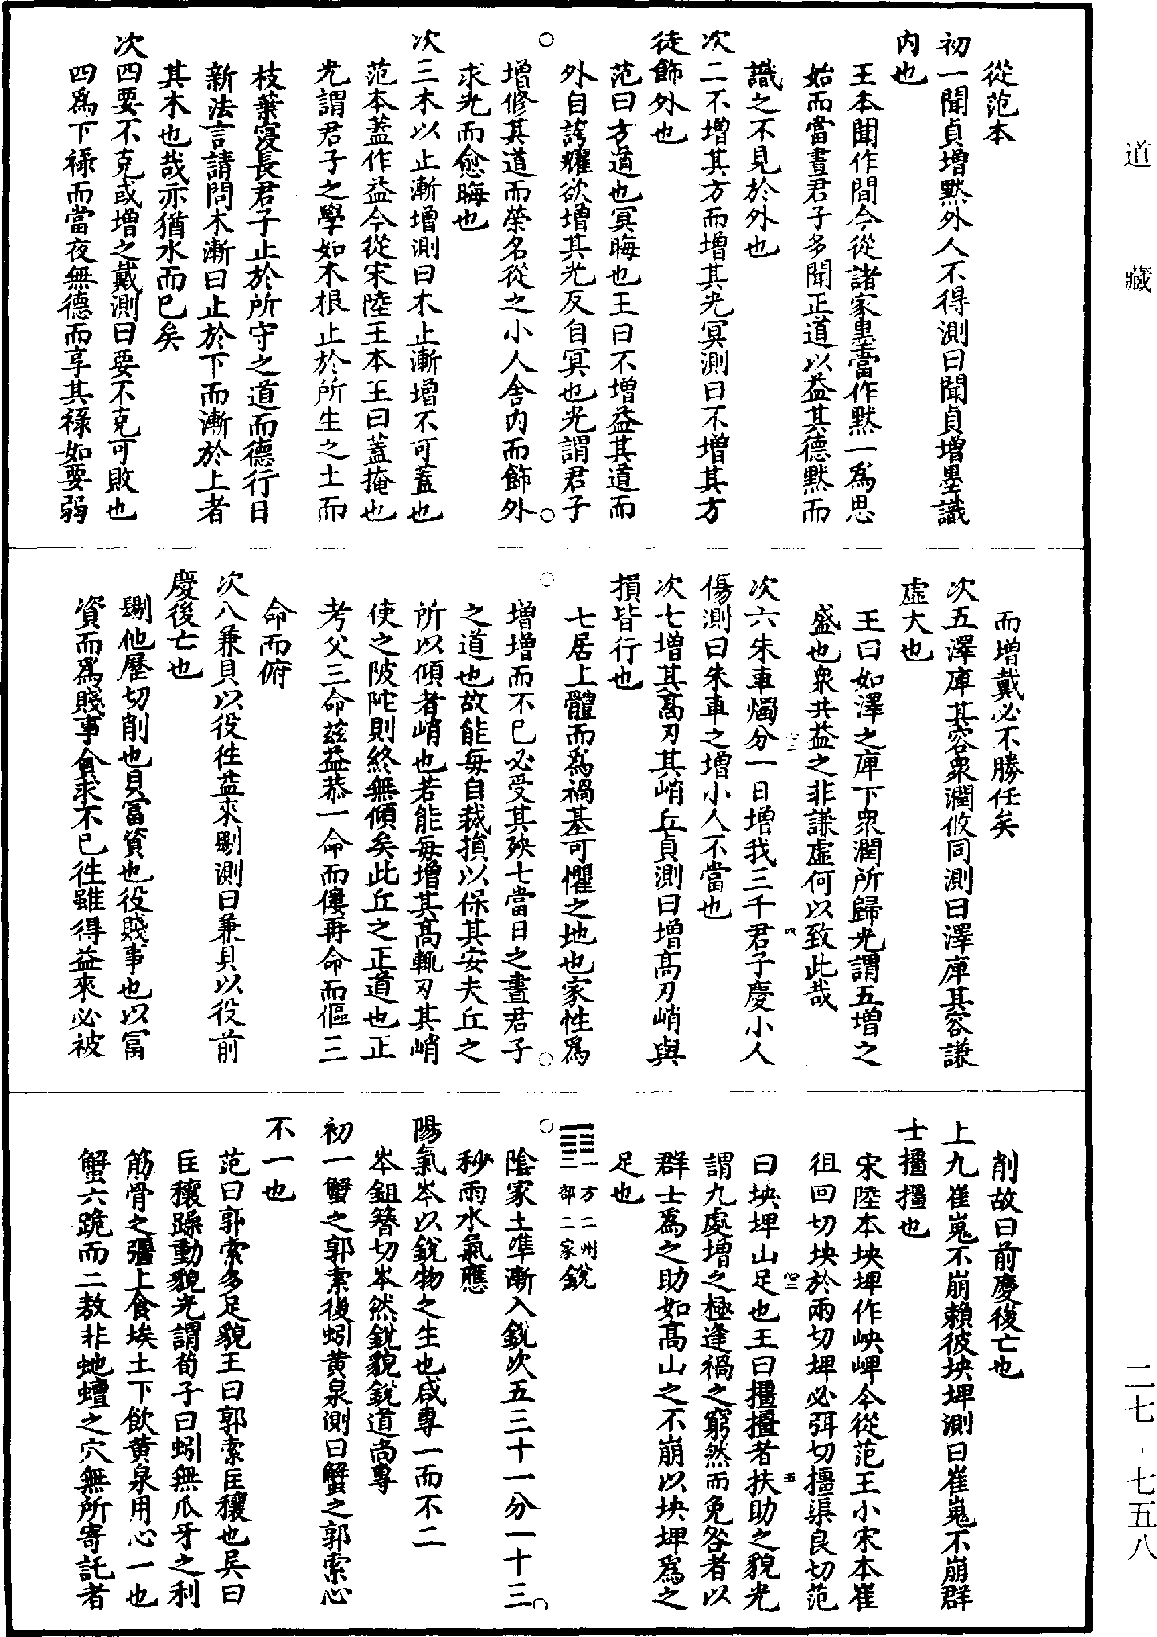 道藏
從范本
初一聞貞增默外人不得測曰聞貞增墨識
內也
王本聞作間今從諸家墨當作默一爲思
始而當晝君子多聞正道以益其德默而
識之不見於外也
次二不增其方而增其光冥測曰不增其方
徒飾外也
范曰方道也冥晦也王曰不增益其道而
外自誇耀欲增其光反自冥也光謂君子
增修其道而榮名從之小人舍內而飾外
求光而愈晦也
次三木以止漸增測曰木止漸增不可蓋也
范本蓋作益今從宋陸王本王曰蓋掩也
光謂君子之學如木根止於所生之土而
枝葉寖長君子止於所守之道而德行日
新法言請問木漸曰止於下而漸於上者
其木也哉亦猶水而已矣
次四要不克或增之戴測曰要不克可敗也
四爲下祿而當夜無德而享其祿如要弱
而增戴必不勝任矣
次五澤庳其容衆潤攸同測曰澤庳其容謙
虛大也
王曰如澤之庳下衆潤所歸光謂五增之
盛也衆共益之非謙虛何以致此哉
次六朱車燭分一日增我三千君子慶小人
傷測曰朱車之增小人不當也
次七增其高刃其峭丘貞測曰增高刃峭與
損皆行也
七居上體而爲禍基可懼之地也家性爲
增增而不已必受其殃七當日之晝君子
之道也故能每自裁損以保其安夫丘之
所以傾者峭也若能每增其高輒刃其峭
使之陂陀則終無傾矣此丘之正道也正
考父三命茲益恭一命而僂再命而傴三
命而俯
次八兼貝以役往益來𠠫測曰兼貝以役前
慶後亡也
𠠫他歷切削也貝富資也役賤事也以富
資而爲賤事貪求不已往雖得益來必被
削故曰前慶後亡也
上九崔嵬不崩賴彼坱埤測曰崔嵬不崩群
士橿橿也
宋陸本坱埤作岟崥今從范王小宋本崔
徂回切坱於兩切埤必弭切橿渠良切范
曰坱埤山足也王曰橿橿者扶助之貌光
謂九處增之極逢禍之窮然而免咎者以
群士爲之助如高山之不崩以坱埤爲之
足也
一方二州三部二家銳
陰家土準漸入銳次五三十一分一十三
秒雨水氣應
陽氣岑以銳物之生也咸專一而不二
岑鉏簪切岑然銳貌銳道尚專
初一蟹之郭索後蚓黃泉測曰蟹之郭索心
不一也
范曰郭索多足貌王曰郭索匡穰也吳曰
匡穰躁動貌光謂荀子曰蚓無爪牙之利
筋骨之彊上食埃土下飲黃泉用心一也
蟹六跪而二敖非虵蟺之穴無所寄託者
二七·七五八